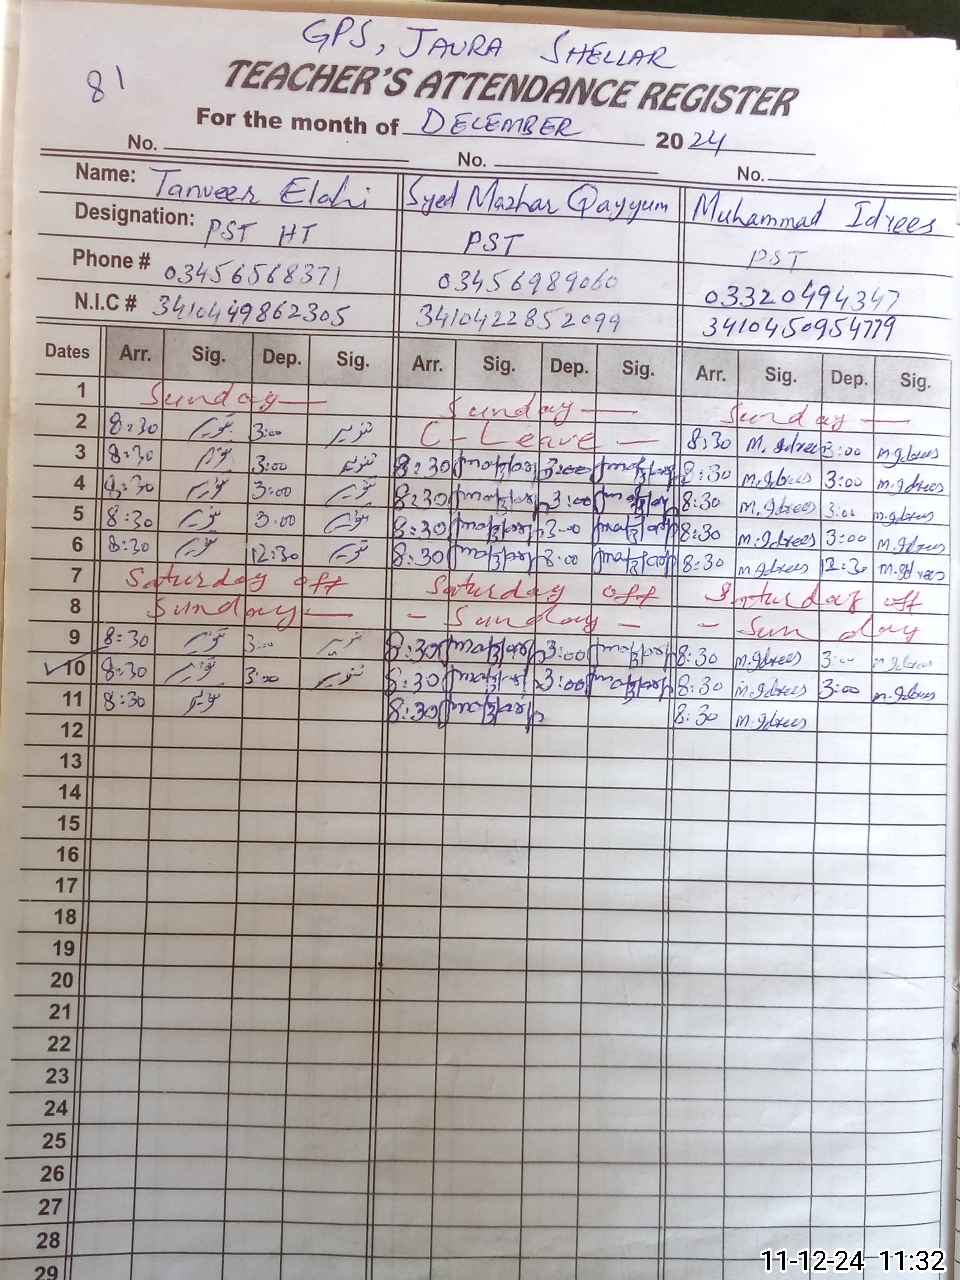 GPS, JAURA SHELLAR
81
TEACHER'S ATTENDANCE REGISTER
For the month of DECEMBER 2024
No. No. No.
Name: Tanveer Elahi Syed Mazhar Qayyum Muhammad Idrees
Designation: PST HT PST PST
Phone # 03456568371 03456989060 03320494347
N.I.C # 3410449862305 3410422852099 3410450954779
Dates Arr. Sig. Dep. Sig. Arr. Sig. Dep. Sig. Arr. Sig. Dep. Sig.
1 Sunday— Sunday — Sunday —
2 8:30 3:00 C-Leave — 8:30 M. Idrees 3:00 m.Idrees
3 8:30 3:00 8:30 3:00 8:30 m.Idrees 3:00 m.Idrees
4 8:30 3:00 8:30 3:00 8:30 m.Idrees 3:00 m.Idrees
5 8:30 3:00 8:30 3:00 8:30 m.Idrees 3:00 m.Idrees
6 8:30 12:30 8:30 8:30 m.Idrees 12:30 m.Idrees
7 Saturday off Saturday off Saturday off
8 Sunday — - Sunday - - Sunday
9 8:30 3:00 8:30 3:00 8:30 m.Idrees 3:00 m.Idrees
10 8:30 3:00 8:30 3:00 8:30 m.Idrees 3:00 m.Idrees
11 8:30 8:30 8:30 m.Idrees
12
13
14
15
16
17
18
19
20
21
22
23
24
25
26
27
28
29
11-12-24 11:32